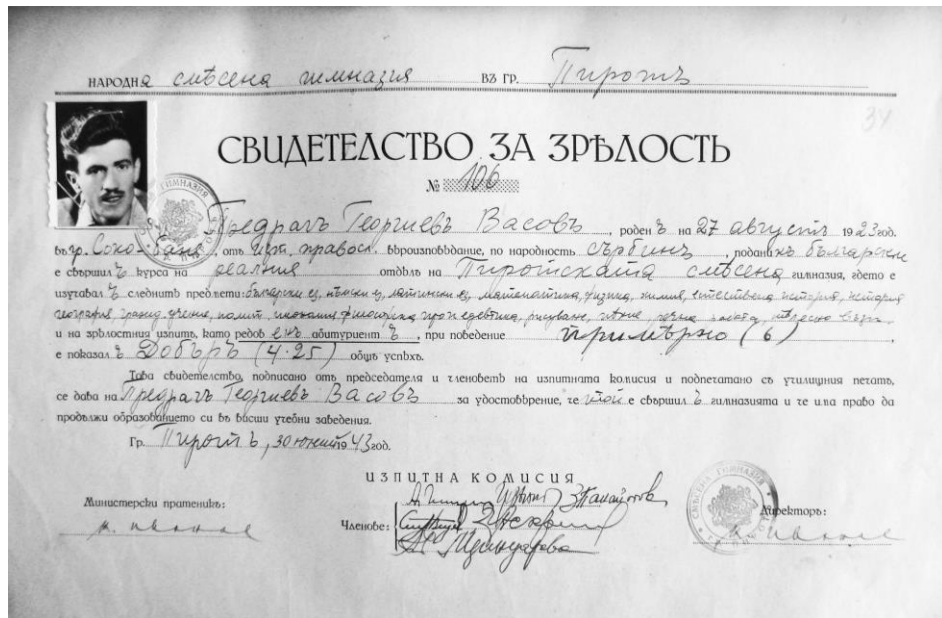 НАРОДНА смѣсена гимназия ВЪ ГР. Пиротъ
34
СВИДЕТЕЛСТВО ЗА ЗРѢЛОСТЬ
№ 106
Предрагъ Георгиевъ Васовъ, роденъ на 27 августъ 1923 год.
въ гр. Соко-Баня, отъ изт. правосл. вѣроизповѣдание, по народность сърбинъ, поданикъ български
е свършилъ курса на реалния отдѣлъ на Пиротската смѣсена гимназия, гдето е
изучавалъ следнитѣ предмети: български ез., нѣмски ез., латински ез., математика, физика, химия, естествена история, история
география, гражд. учение, полит. икономия, философска пропедевтика, рисуване, пѣние, ръчна работа, тѣлесно възп.
и на зрѣлостния изпитъ, като редовенъ абитуриентъ, при поведение примѣрно (6)
е показалъ Добъръ (4·25) общъ успѣхъ.
Това свидетелство, подписано отъ председателя и членоветѣ на изпитната комисия и подпечатано съ училищния печатъ,
се дава на Предрагъ Георгиевъ Васовъ за удостовѣрение, че той е свършилъ гимназията и че има право да
продължи образованието си въ висши учебни заведения.
Гр. Пиротъ, 30 юний 1943 год.
ИЗПИТНА КОМИСИЯ
Министерски пратеникъ:
Членове:
Директоръ: